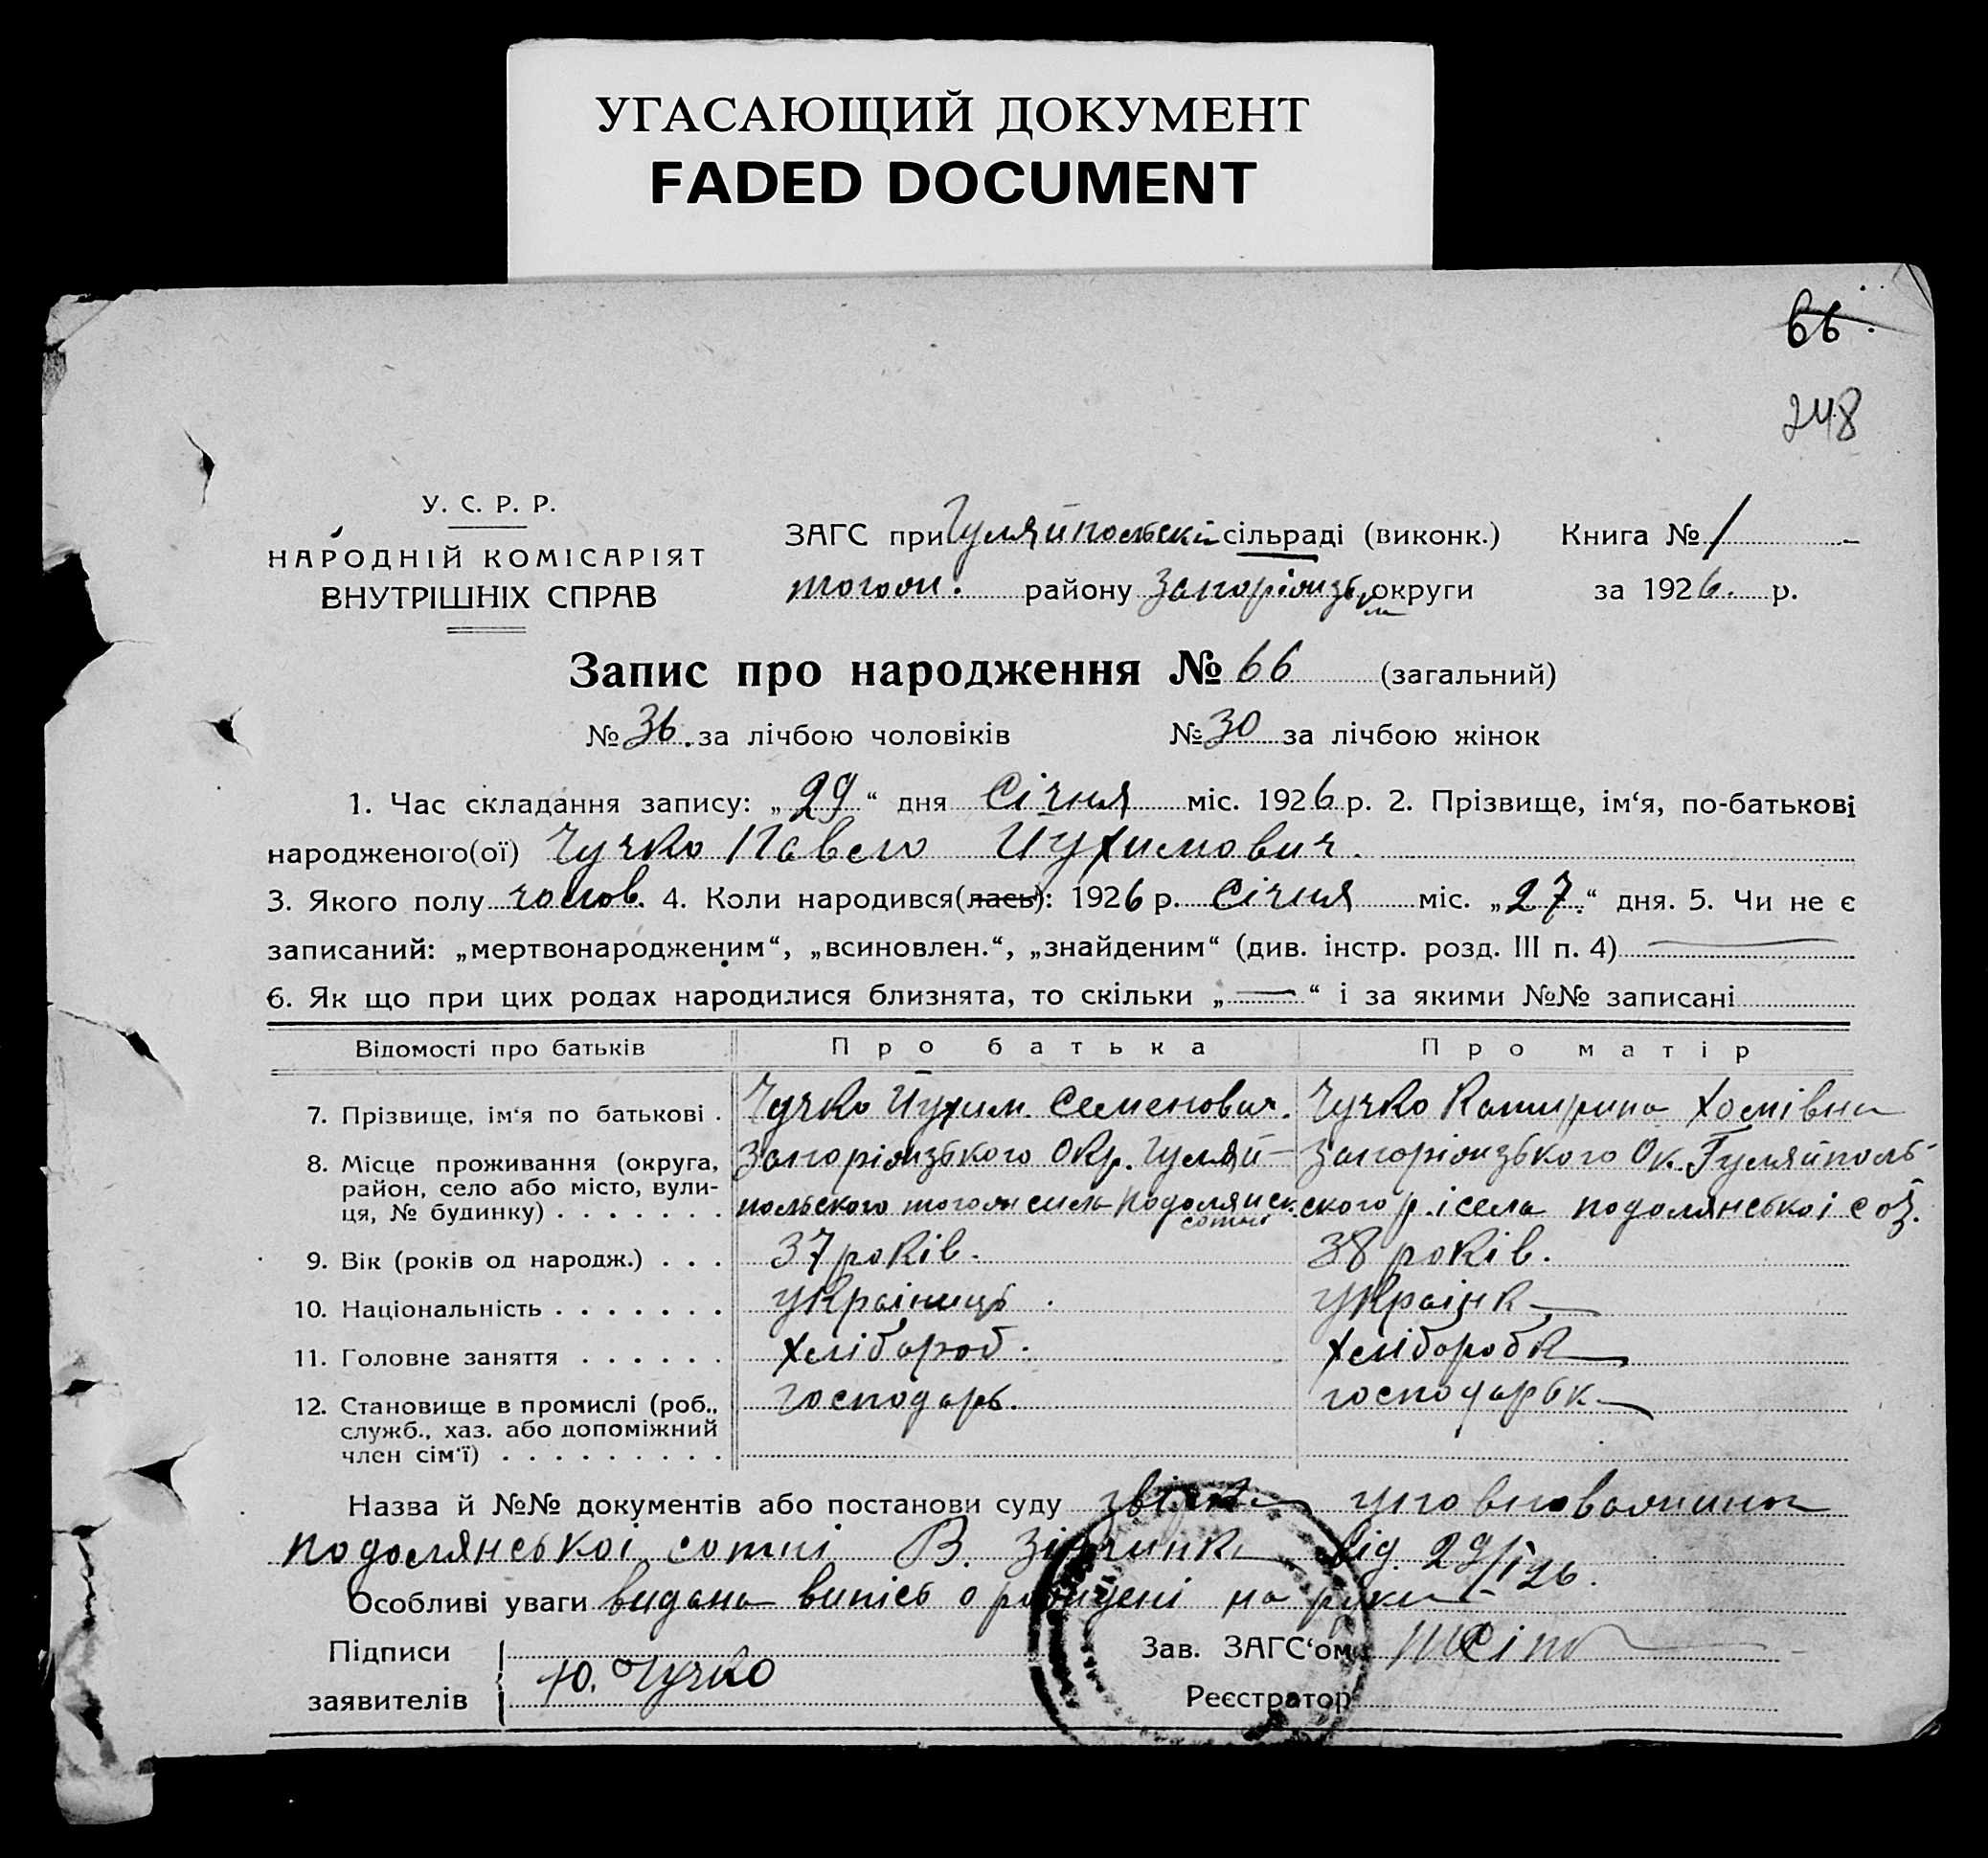 УГАСАЮЩИЙ ДОКУМЕНТ
FADED DOCUMENT
66
248
У. С. Р. Р.
НАРОДНІЙ КОМІСАРІЯТ
ВНУТРІШНІХ СПРАВ
ЗАГС при Гуляйпольскі сільраді (виконк.) Книга № 1
тогож. району Запоріжзьк округи за 1926. р.
Запис про народження № 66 (загальний)
№ 36. за лічбою чоловіків № 30 за лічбою жінок
1. Час складання запису: „29“ дня Січня міс. 1926 р. 2. Прізвище, ім‘я, по-батькові
народженого(ої) Чучко Павело Йухимович.
3. Якого полу чолов. 4. Коли народився(лась): 1926 р. Січня міс. „27.“ дня. 5. Чи не є
записаний: „мертвонародженим“, „всиновлен.“, „знайденим“ (див. інстр. розд. III п. 4)
6. Як що при цих родах народилися близнята, то скільки „—“ і за якими №№ записані
Відомості про батьків Про батька Про матір
7. Прізвище, ім‘я по батькові . Чучко Йухим Семенович. Чучко Катирина Хомівна
8. Місце проживання (округа, Запоріжзького Окр. Гуляй- Запоріжзького Ок. Гуляйполь-
район, село або місто, вули- польского тогож села Подолянск. ского р. і села подолянської
ця, № будинку) . . . . . . . сотні
9. Вік (років од народж.) . . . 37 років. 38 років.
10. Національність . . . . . . . Україниць. Українк
11. Головне заняття . . . . . . Хлібороб. Хлiборобк
12. Становище в промислі (роб., господарь. господарьк
служб., хаз. або допоміжний
член сім‘ї) . . . . . . . . .
Назва й №№ документів або постанови суду звістка уповноваженого
подолянської сотні В. від. 29/I 26.
Особливі уваги видана випісь о рождені на руки
Підписи Зав. ЗАГС‘ом
заявителів Ю. Чучко Реєстратор